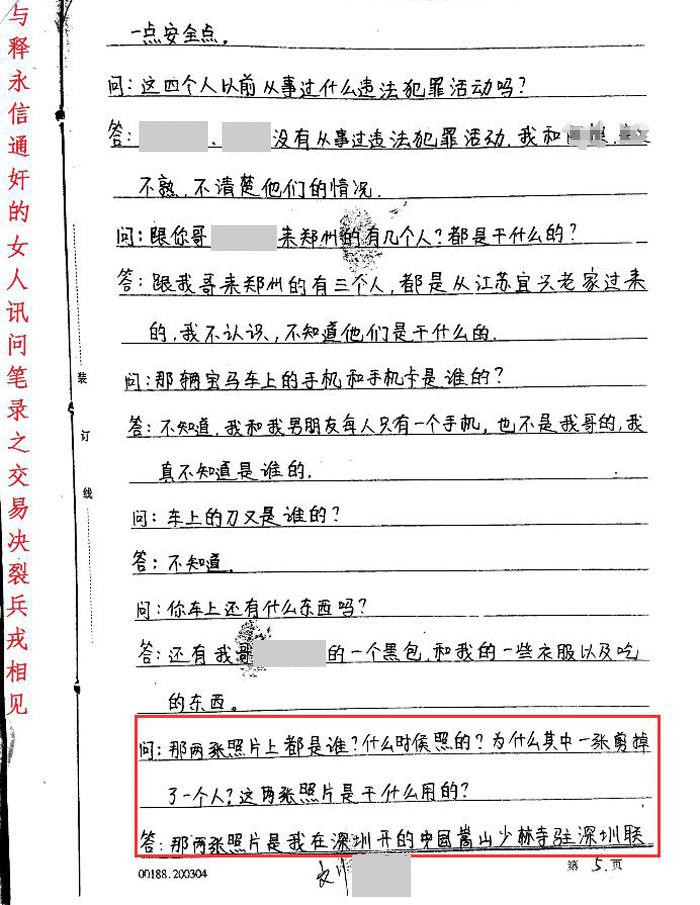 与释永信通奸的女人讯问笔录之交易决裂兵戎相见
装订线
一点安全点。
问:这四个人以前从事过什么违法犯罪活动吗?
答:、没有从事过违法犯罪活动.我和
不熟,不清楚他们的情况.
问:跟你哥来郑州的有几个人?都是干什么的?
答:跟我哥来郑州的有三个人,都是从江苏宜兴老家过来
的,我不认识,不知道他们是干什么的.
问:那辆宝马车上的手机和手机卡是谁的?
答:不知道,我和我男朋友每人只有一个手机,也不是我哥的,我
真不知道是谁的.
问:车上的刀又是谁的?
答:不知道.
问:你车上还有什么东西吗?
答:还有我哥的一个黑包,和我的一些衣服以及吃
的东西。
问:那两张照片上都是谁?什么时候照的?为什么其中一张剪掉
了一个人?这两张照片是干什么用的?
答:那两张照片是我在深圳开的中国嵩山少林寺驻深圳联
00188.200304
第5.页